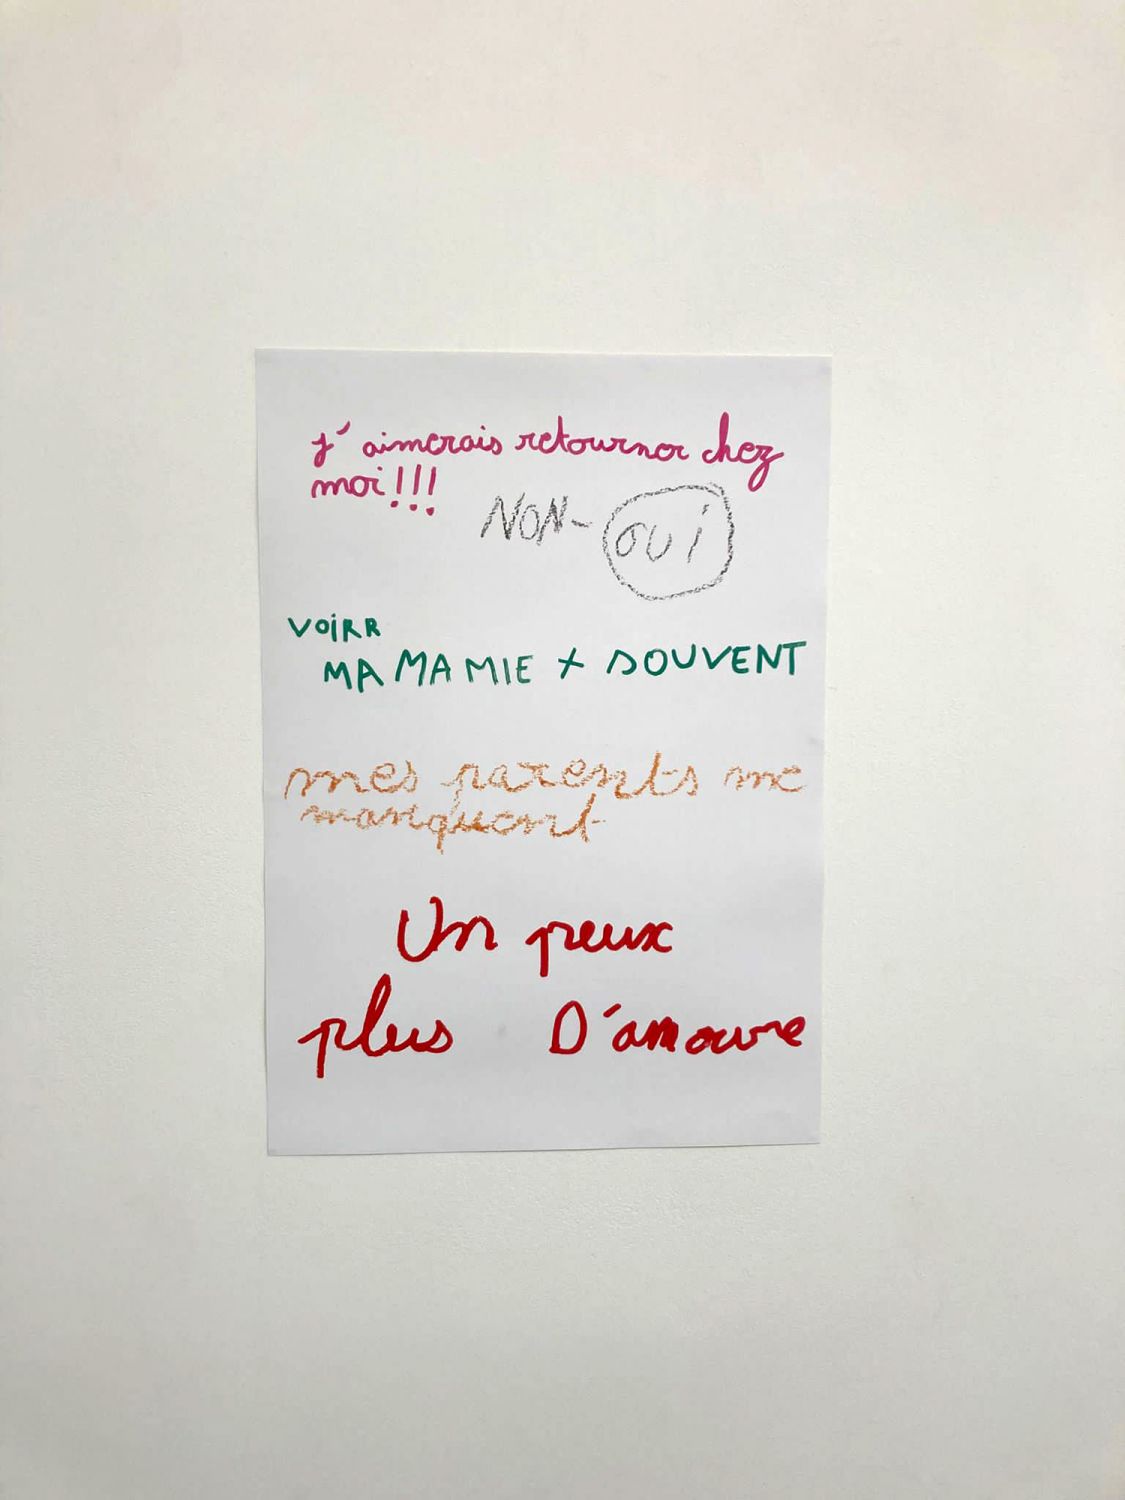 j'aimerais retourner chez
moi!!!
NON- OUi
VOiRR
MA MAMIE + SOUVENT
mes parents me
manquent
Un peux
plus D'amoure